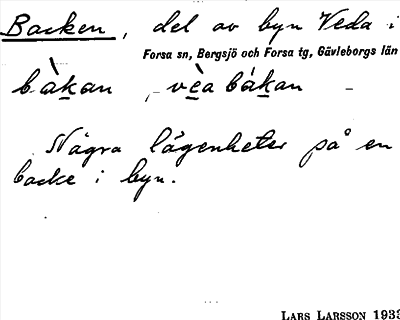 Backen, del av byn Veda i
Forsa sn, Bergsjö och Forsa tg, Gävleborgs län
bàkan , vèa bákan -
Några lägenheter på en
backe i byn.
LARS LARSSON 1933